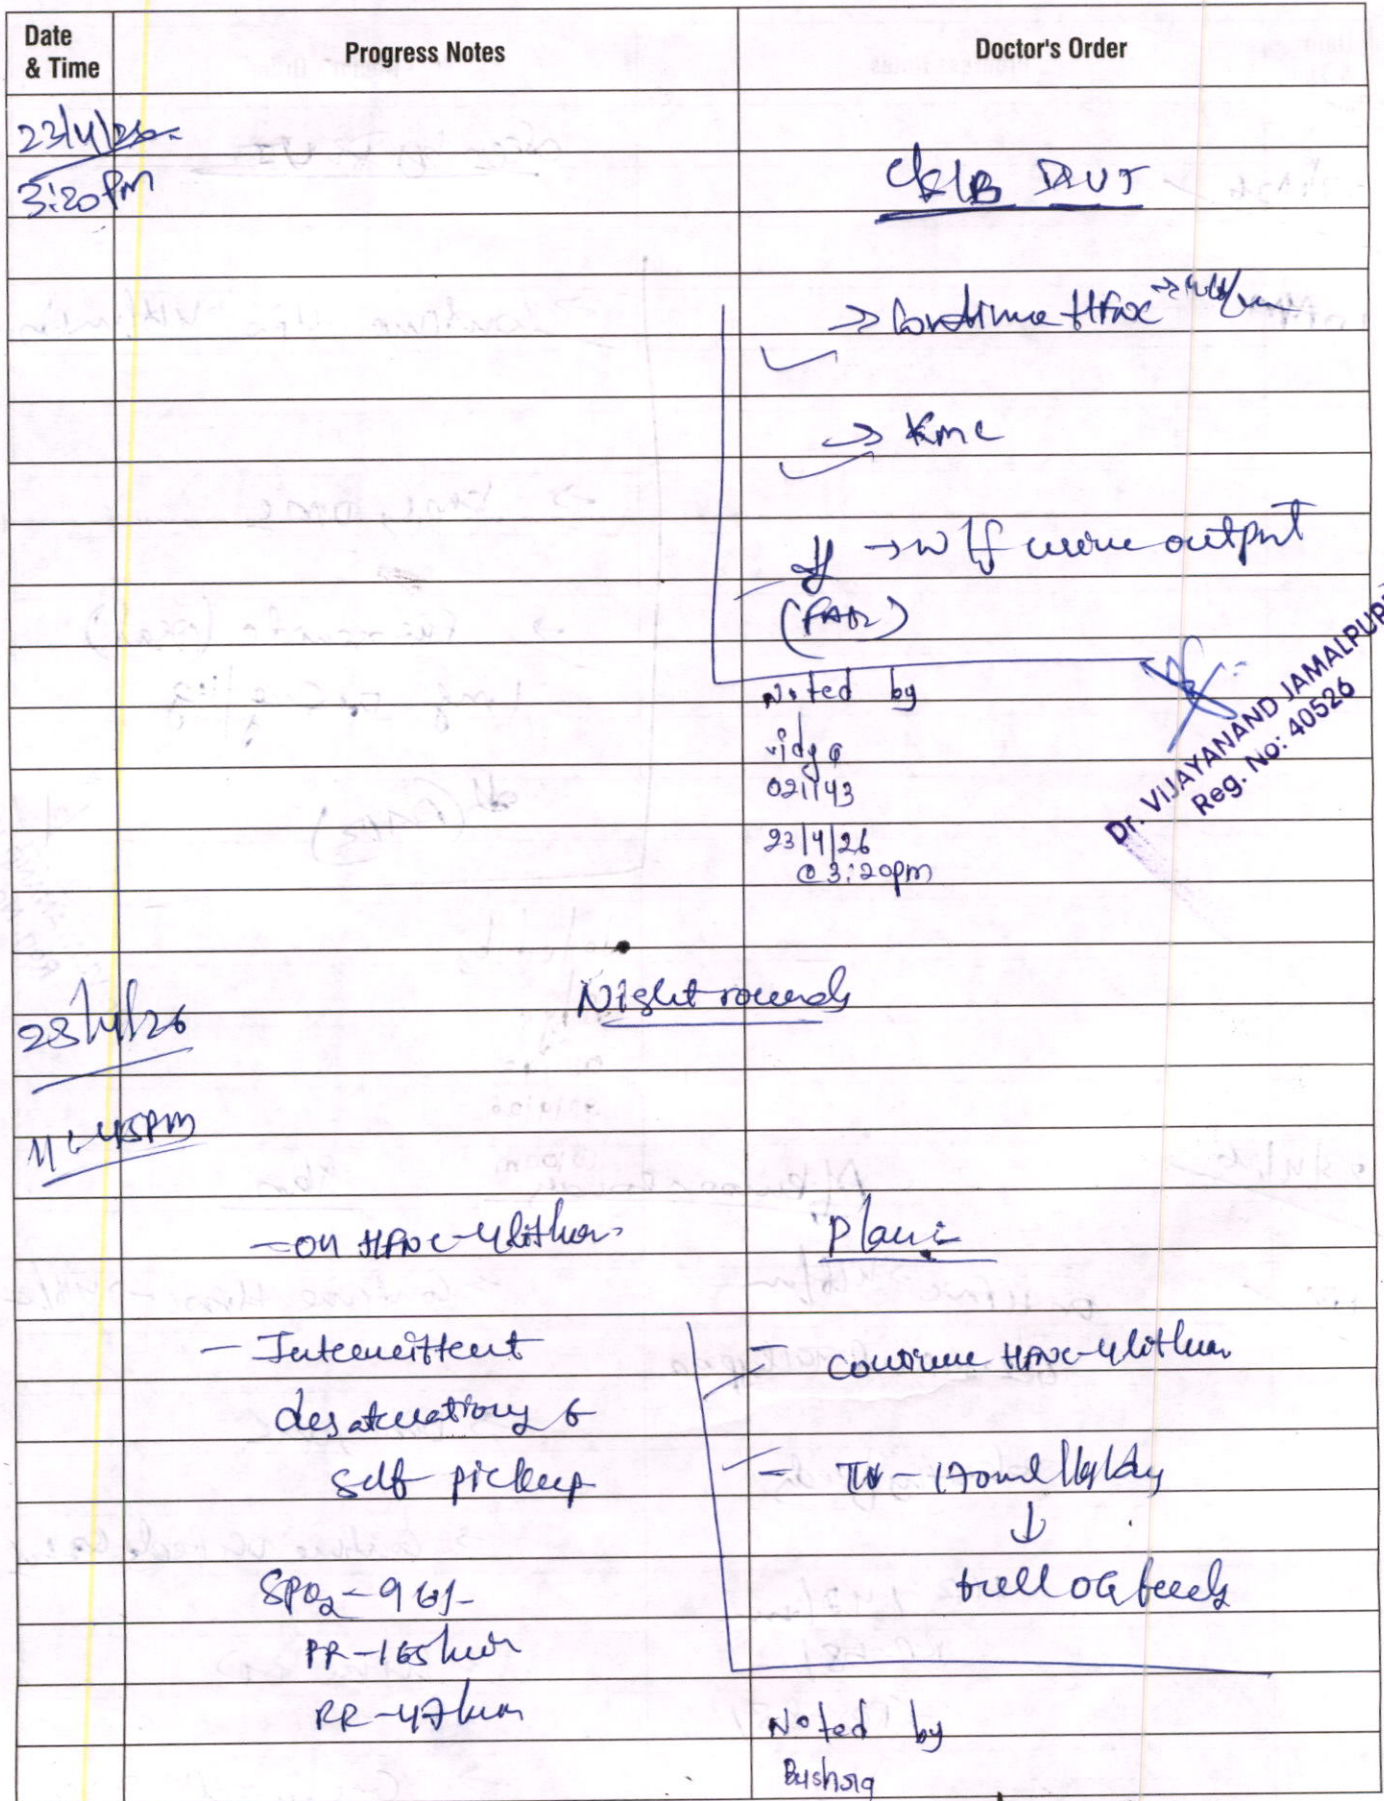 Date & Time
Progress Notes
Doctor's Order
23/4/26
3:20pm
C/S/B DRVJ
→ Continue HFNC → 4lit/min
→ KMC
→ W/f urine output
(PADR)
Noted by
vidya
021143
23/4/26
@ 3:20pm
Dr. VIJAYANAND JAMALPURI
Reg. No: 40526
Night rounds
23/4/26
11:45PM
- On HFNC - 4lit/min
Plan:
- Intermittent
desaturations
self pickup
- continue HFNC - 4lit/min
- TV - 170ml/kg/day
↓
full OG feeds
SPO2 - 96%
PR - 165/min
RR - 47/min
Noted by
Bushra